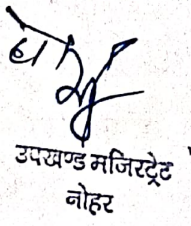 उपखण्ड मजिस्ट्रेट
नोहर